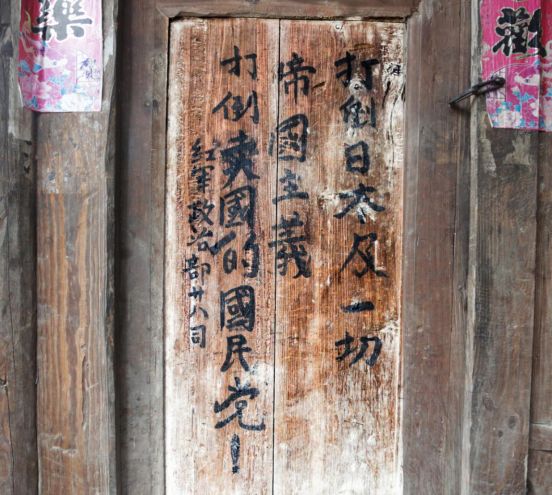 歡
打倒日本及一切
帝國主義
打倒賣國的國民党！
紅軍政治部廿八司
樂